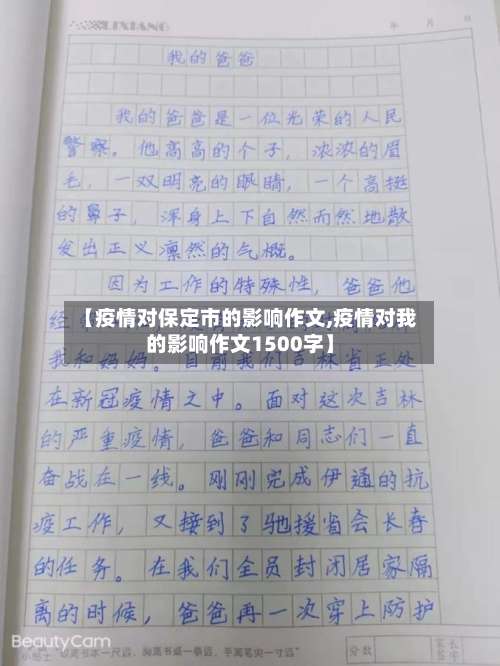 LIXIANG
年 月 日
我的爸爸
我的爸爸是一位光荣的人民
警察。他高高的个子，浓浓的眉
毛，一双明亮的眼睛，一个高挺
的鼻子，浑身上下自然而然地散
发出正义凛然的气概。
因为工作的特殊性，爸爸他
经
【疫情对保定市的影响作文,疫情对我
的影响作文1500字】
我和妈妈。目前我们吉林省正处
在新冠疫情之中。面对这次吉林
的严重疫情，爸爸和同志们一直
奋战在一线。刚刚完成伊通的抗
疫工作，又接到了驰援省会长春
的任务。在我们全员封闭居家隔
离的时候，爸爸再一次穿上防护
BeautyCam
小贴士 “眼离书本一尺远，胸离书桌一拳远，手离笔尖一寸远”
分数
家长
签字